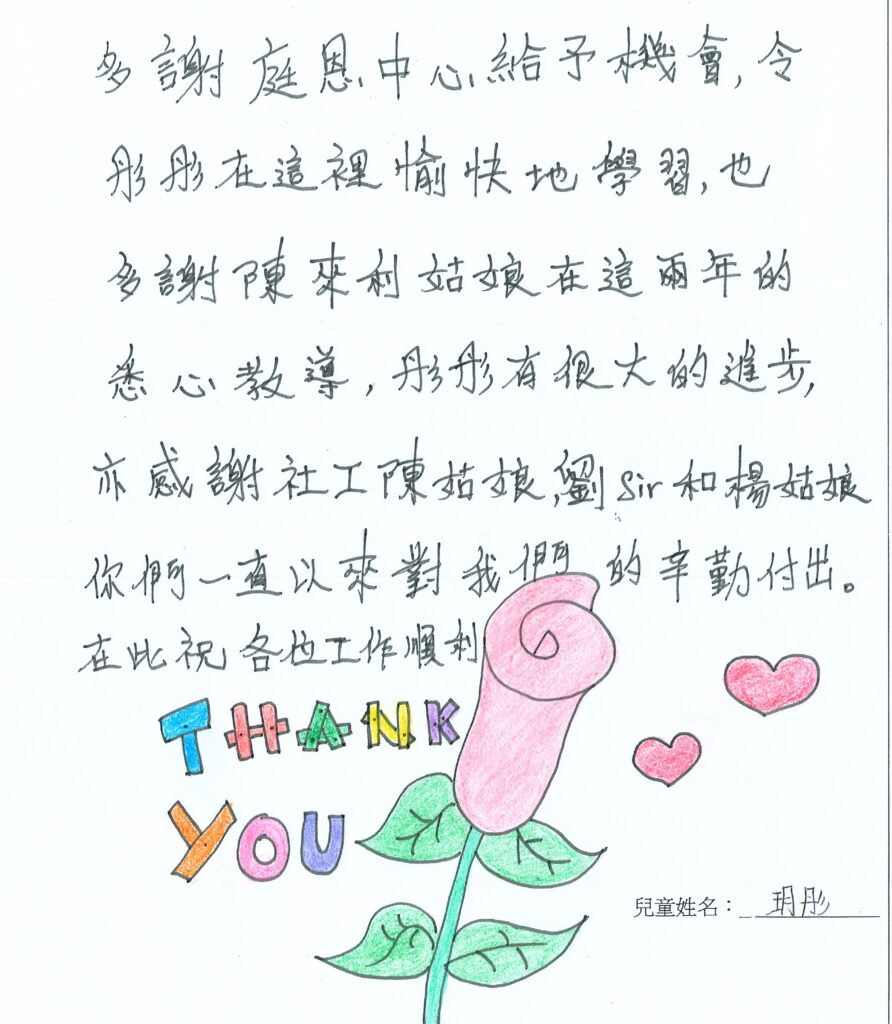 多謝庭恩中心給予機會,令
彤彤在這裡愉快地學習,也
多謝陳來利姑娘在這兩年的
悉心教導,彤彤有很大的進步,
亦感謝社工陳姑娘,劉Sir和楊姑娘
你們一直以來對我們的辛勤付出。
在此祝各位工作順利
THANK
YOU
兒童姓名:玥彤